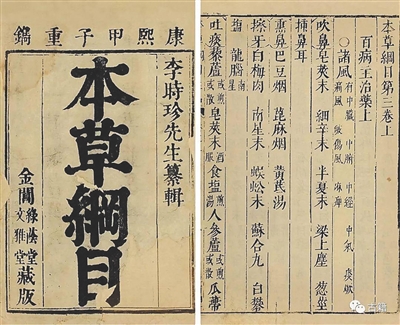 康熙甲子重鐫
李時珍先生纂輯
本草綱目
金閶
綠蔭堂
文雅堂
藏版
本草綱目第三卷上
百病主治藥上
○諸風 有中臟 中腑 中經 中氣 痰厥
痛風 破傷風 麻痺
吹鼻皂莢末 細辛末 半夏末 梁上塵 葱莖
插鼻耳
熏鼻巴豆烟 蓖麻烟 黄芪湯
擦牙白梅肉 南星末 蜈蚣末 蘇合丸 白礬
鹽 龍腦南星
吐痰藜蘆或煎或散 皂莢末酒服 食鹽煎湯 人參蘆或煎或散 瓜蒂